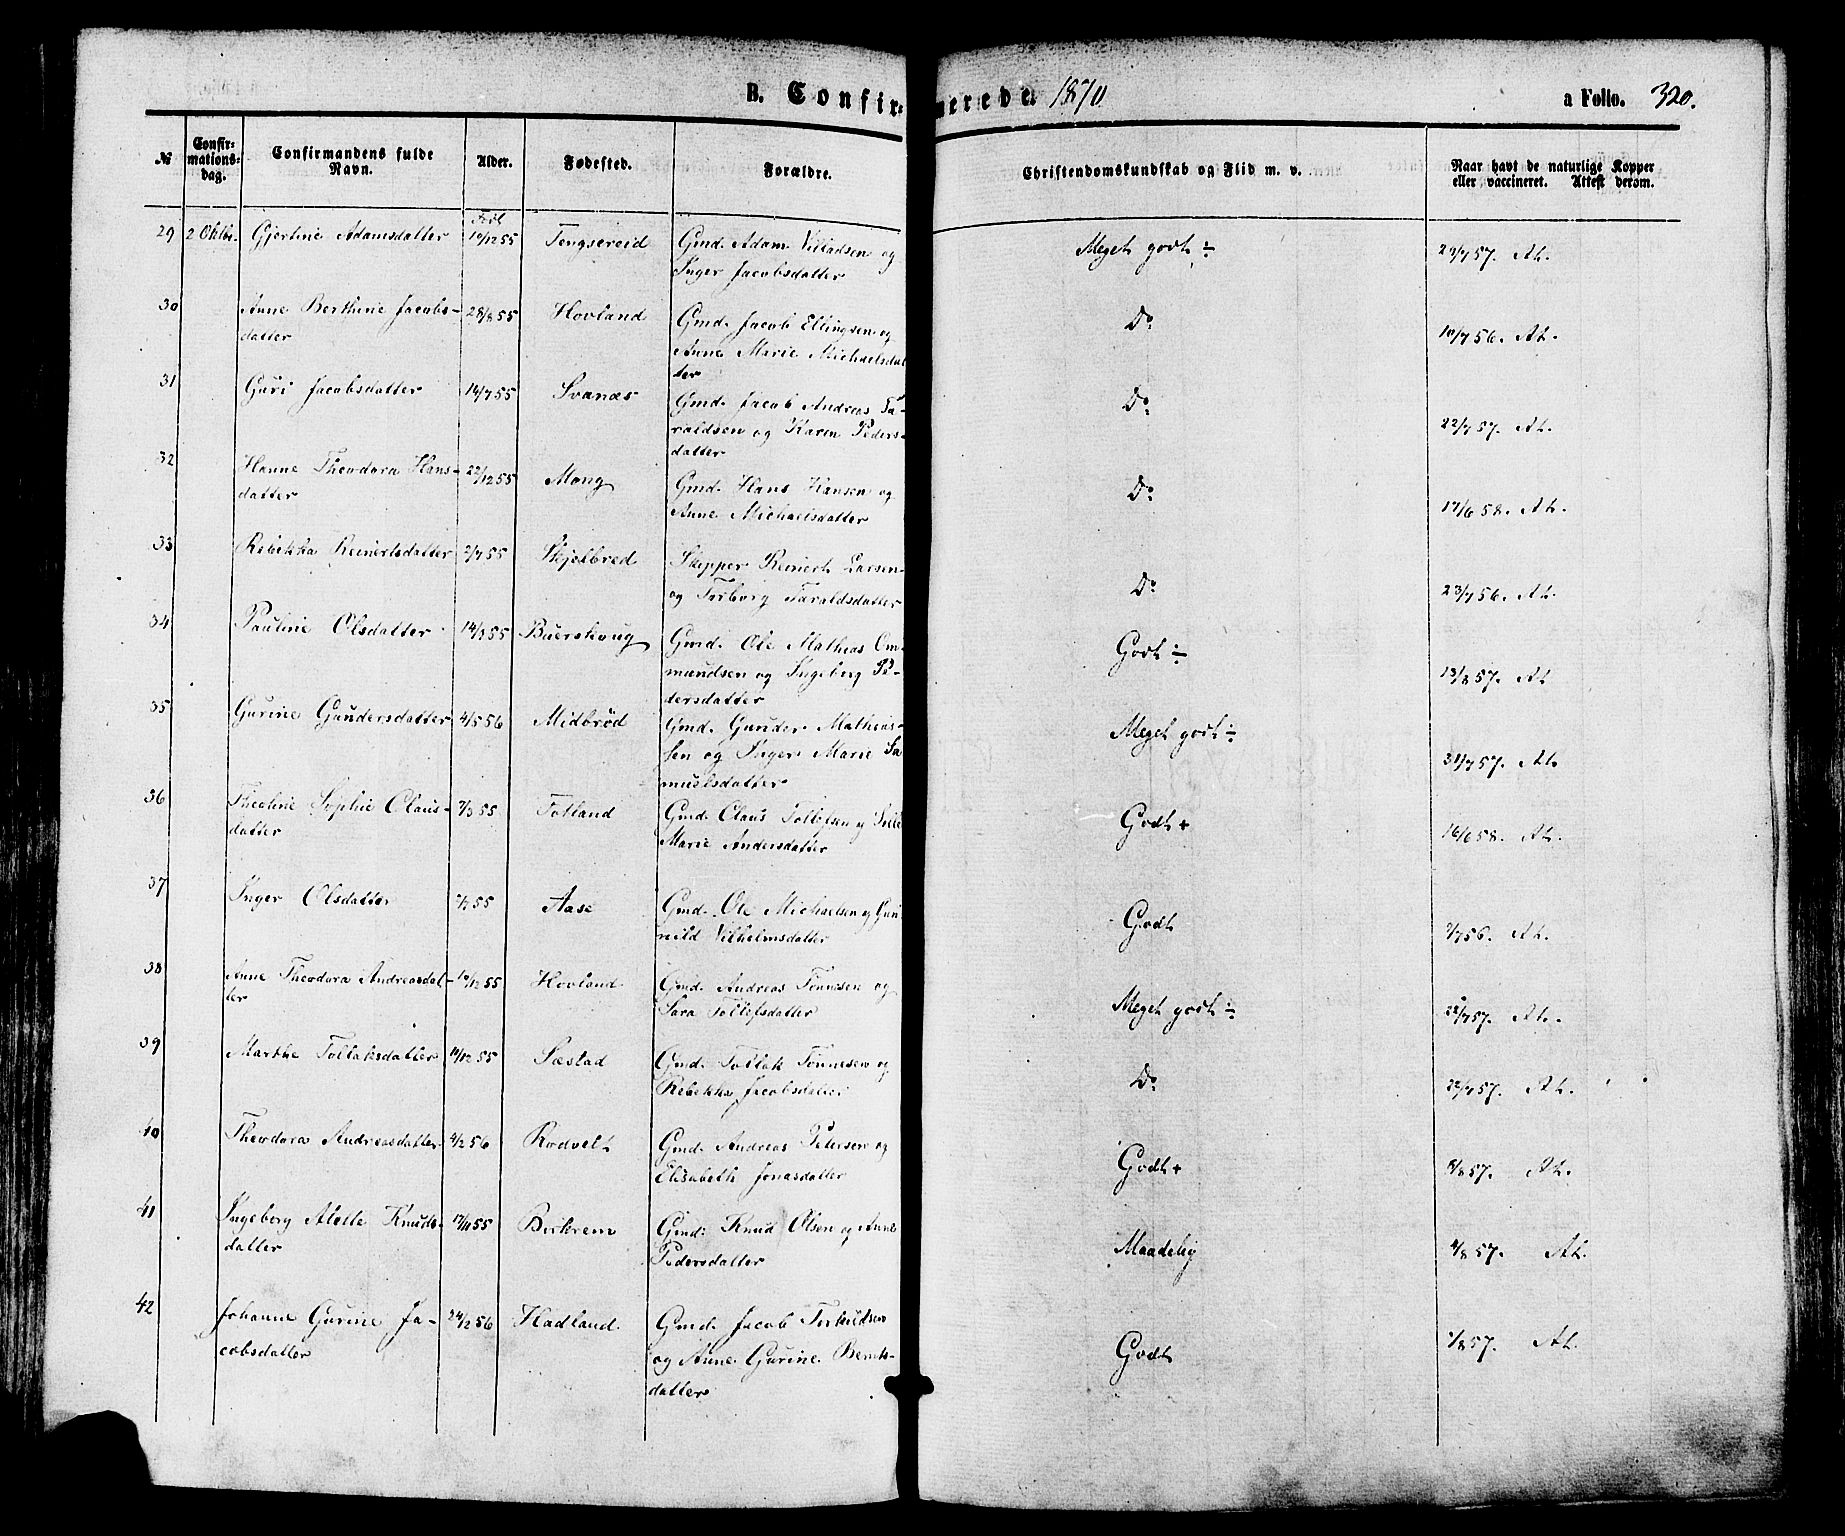 B. Confirmerede 1870 a Folio. 320.
№
Confirmationsdag.
Confirmandens fulde Navn.
Alder.
Fødested.
Forældre.
Christendomskundskab og Flid m. v.
Naar havt de naturlige Kopper
eller vaccineret. Attest derom.
Født
29 2 Oktbr. Gjertine Adamsdatter 10/12 55 Tengsereid Gmd. Adam Villadsen og
Inger Jacobsdatter
Meget godt ÷ 29/7 57. At.
30 Anne Berthine Jacobs- 28/8 55 Hovland Gmd. Jacob Ellingsen og
datter Anne Marie Michaelsdat
ter
Do 10/7 56. At.
31 Guri Jacobsdatter 14/7 55 Svanæs Gmd. Jacob Andreas Ta-
raldsen og Karen Peders-
datter
Do 22/7 57. At.
32 Hanne Theodora Hans- 22/12 55 Mong Gmd. Hans Hansen og
datter Anne Michaelsdatter
Do 17/6 58. At.
33 Rebekka Reinertsdatter 2/7 55 Skjelbred Skipper Reinert Larsen
og Torborg Taraldsdatter
Do 23/7 56. At.
34 Pauline Olsdatter 14/3 55 Buerskoug Gmd. Ole Mathias Om-
mundsen og Ingeberg Pe-
dersdatter
Godt ÷ 13/8 57. At
35 Gurine Gundersdatter 4/5 56 Midbrød Gmd. Gunder Mathias-
sen og Inger Marie Sa
muelsdatter
Meget godt ÷ 21/7 57. At.
36 Theoline Sophie Claus- 7/3 55 Totland Gmd. Claus Tollefsen og
datter Marie Andersdatter
Godt + 16/6 58. At.
37 Inger Olsdatter 55 Aase Gmd. Ole Michaelsen og Gun
nild Vilhelmsdatter
Godt 7 56. At.
38 Anne Theodora Andreasdat- 10/12 55 Hovland Gmd. Andreas Tønnesen og
ter Sara Tollefsdatter
Meget godt ÷ 22/7 57. At.
39 Marthe Tollaksdatter 14/12 55 Sæstad Gmd. Tollak Tønnesen og
Rebekka Jacobsdatter
Do 22/7 57. At.
40 Theodora Andreasdatter 4/2 56 Rodvelt Gmd. Andreas Petersen og
Elisabeth Jonasdatter
Godt + 6/8 57. At.
41 Ingeborg Alette Knuds- 17/11 55 Birkrem Gmd. Knud Olsen og Anne
datter Pedersdatter
Maadelig 4/8 57. At.
42 Johanne Gurine Ja- 24/2 56 Hadland Gmd. Jacob Torkildsen
cobsdatter og Anne Gurine Bernts-
datter
Godt /8 57. At.